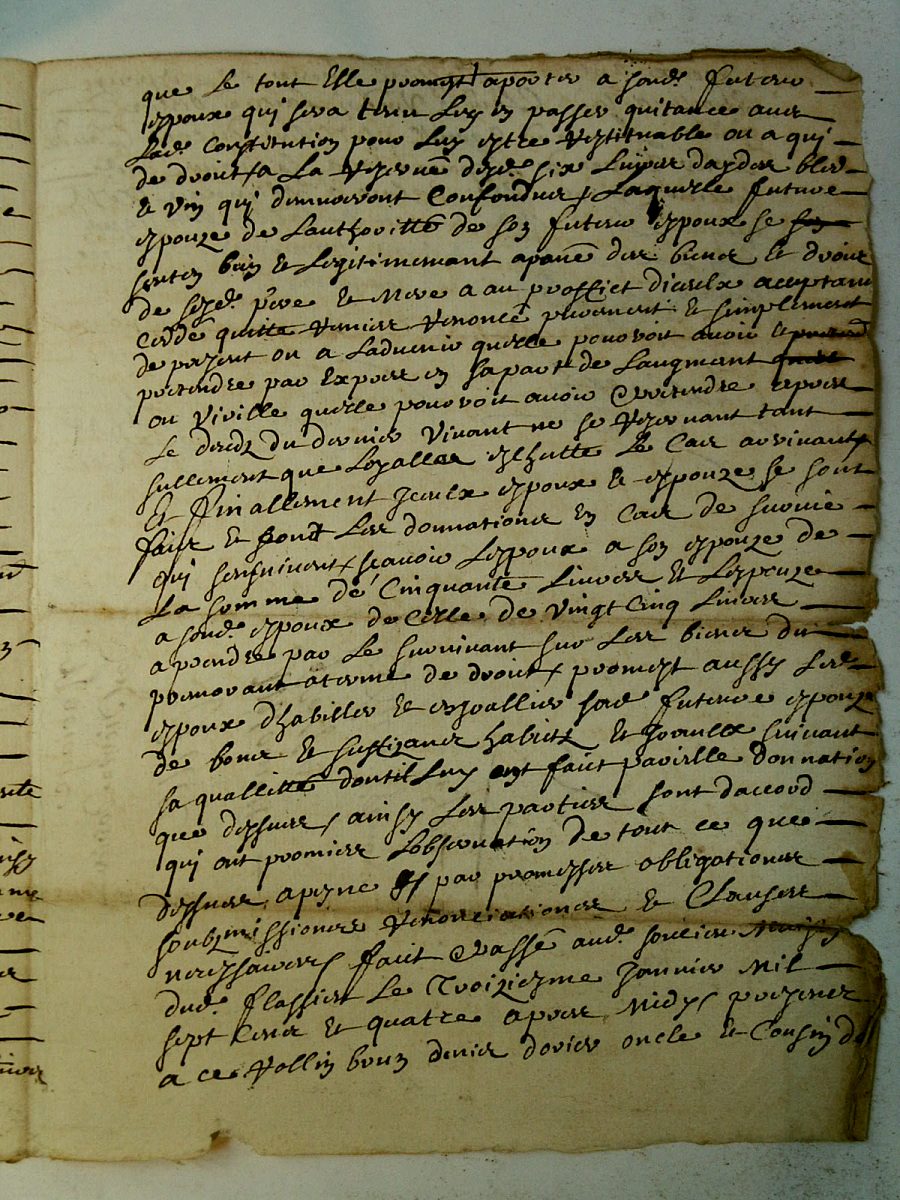 que Le tout Elle promest aporter a sond. futeur
espoux qui sera tenu Luy en passer quitance avec
Lad. Constitution pour Luy estre restituable ou a qui
de droit / a La reserve desd. six Livres dayder bled
& vin qui demureront Confondues / Laquelle future
espouze de Lauthoritté de son futeur espoux se
sentan bien & Legitimemant apanée des biens & droits
de sesd. pere & Mere a au proffict diceulx aceptant
Ceddé quitté remis renoncé purement & simplement
de present ou a Ladvenir quelle pouvoit avoir &
pretendre par Expres en sa part de Laugment
ou Viville quelle pouvoit avoir & pretendre apres
Le deces du dernier Vivant ne se reservant tant
sullement que Loyalle escheutte Le Cas arrivant /
Et finallement Iceulx espoux & espouze se sont
faits & font Les donnations En Cas de survie
qui sensuivent / scavoir Lespoux a son espouze de
La somme de Cinquante Livres & Lespouze
a sond. espoux de Celle de Vingt Cinq Livres
a prendre par Le survivant sur Les biens du
premourant a terme de droit / promest aussy Led.
espoux dhabiller & enjoallier sad. future espouze
de bons & suffizants habitz & Joyaulx suivant
sa quallitté dont il Luy en faict pareille donnation
que dessus / ainsy Les parties sont daccord
qui ont promis Lobservation de tout ce que
dessus a peyne & par promesses obligations
soubzmissions renonciations & Clauses
necessaires / faict & passé aud.
dud. flassieu Le Troiziesme Janvier Mil
sept Cens & quatre apres Midy / presents
a ce Rollin brun oncle & Cousin de